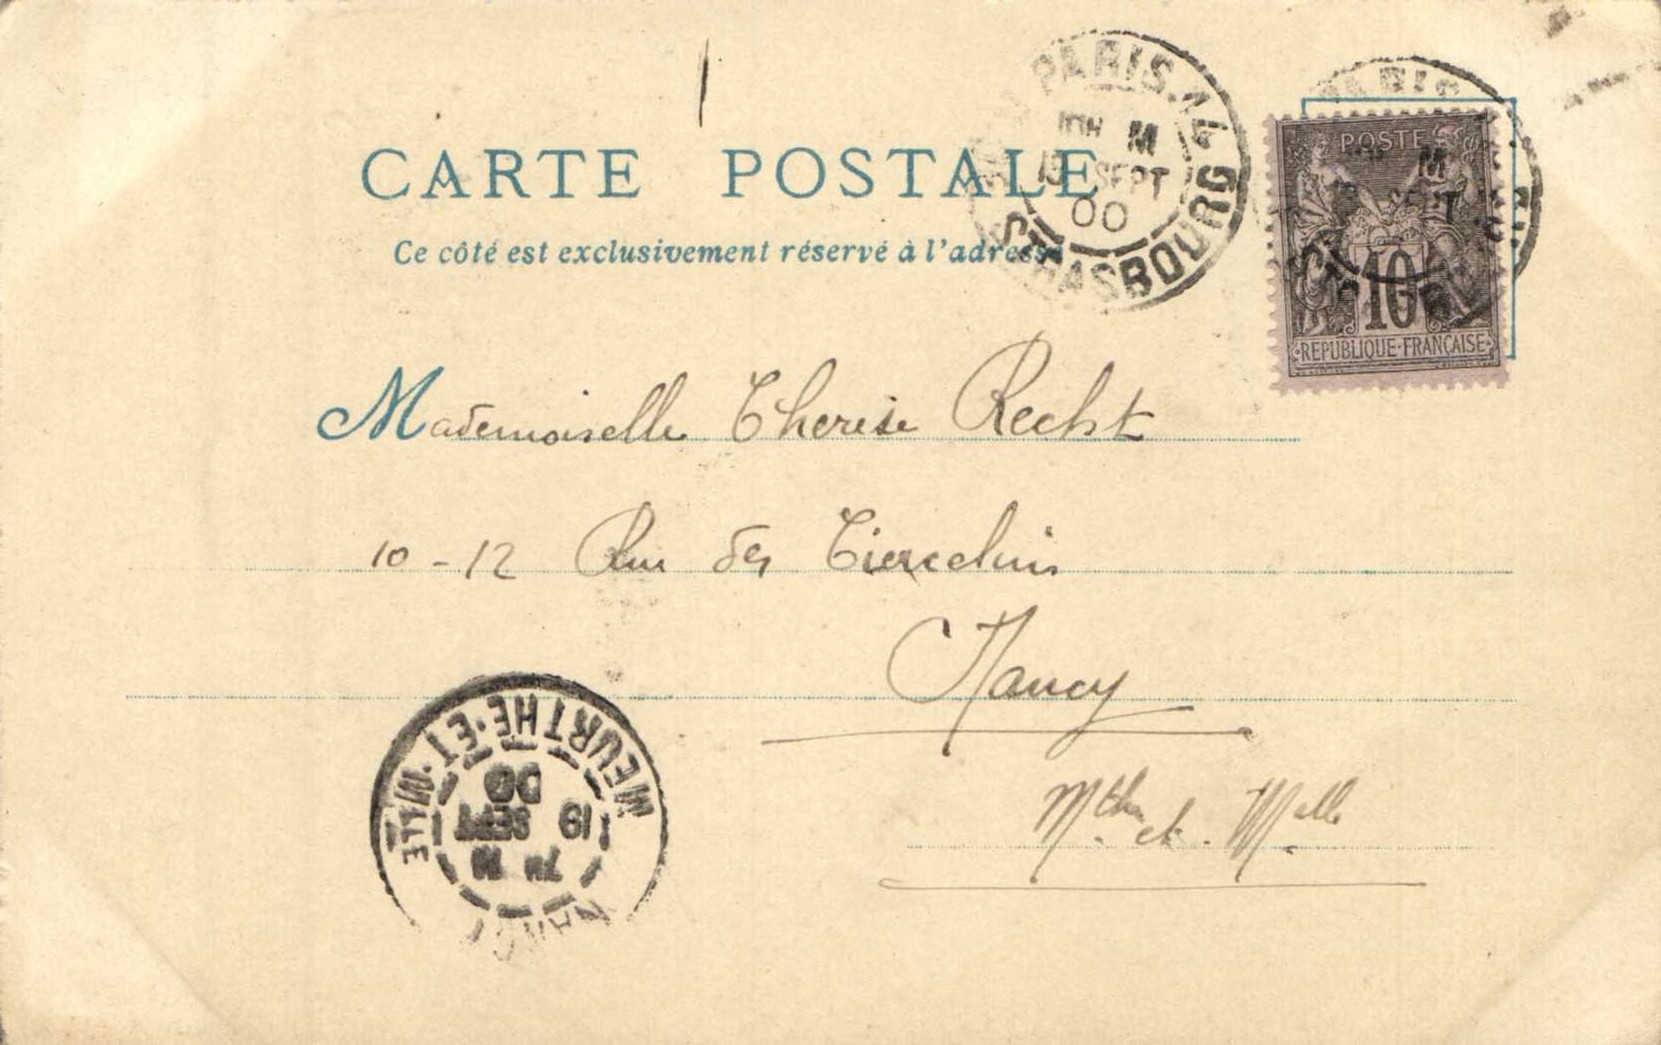 CARTE POSTALE
Ce côté est exclusivement réservé à l'adresse
PARIS.14
10H M
SEPT
00
STRASBOURG
POSTE
10
REPUBLIQUE·FRANÇAISE
Mademoiselle Therese Recht
10-12 Rue des Tiercelins
Nancy
Mthe et Melle
NANCY
7H M
19 SEPT
00
MEURTHE-ET-MLLE